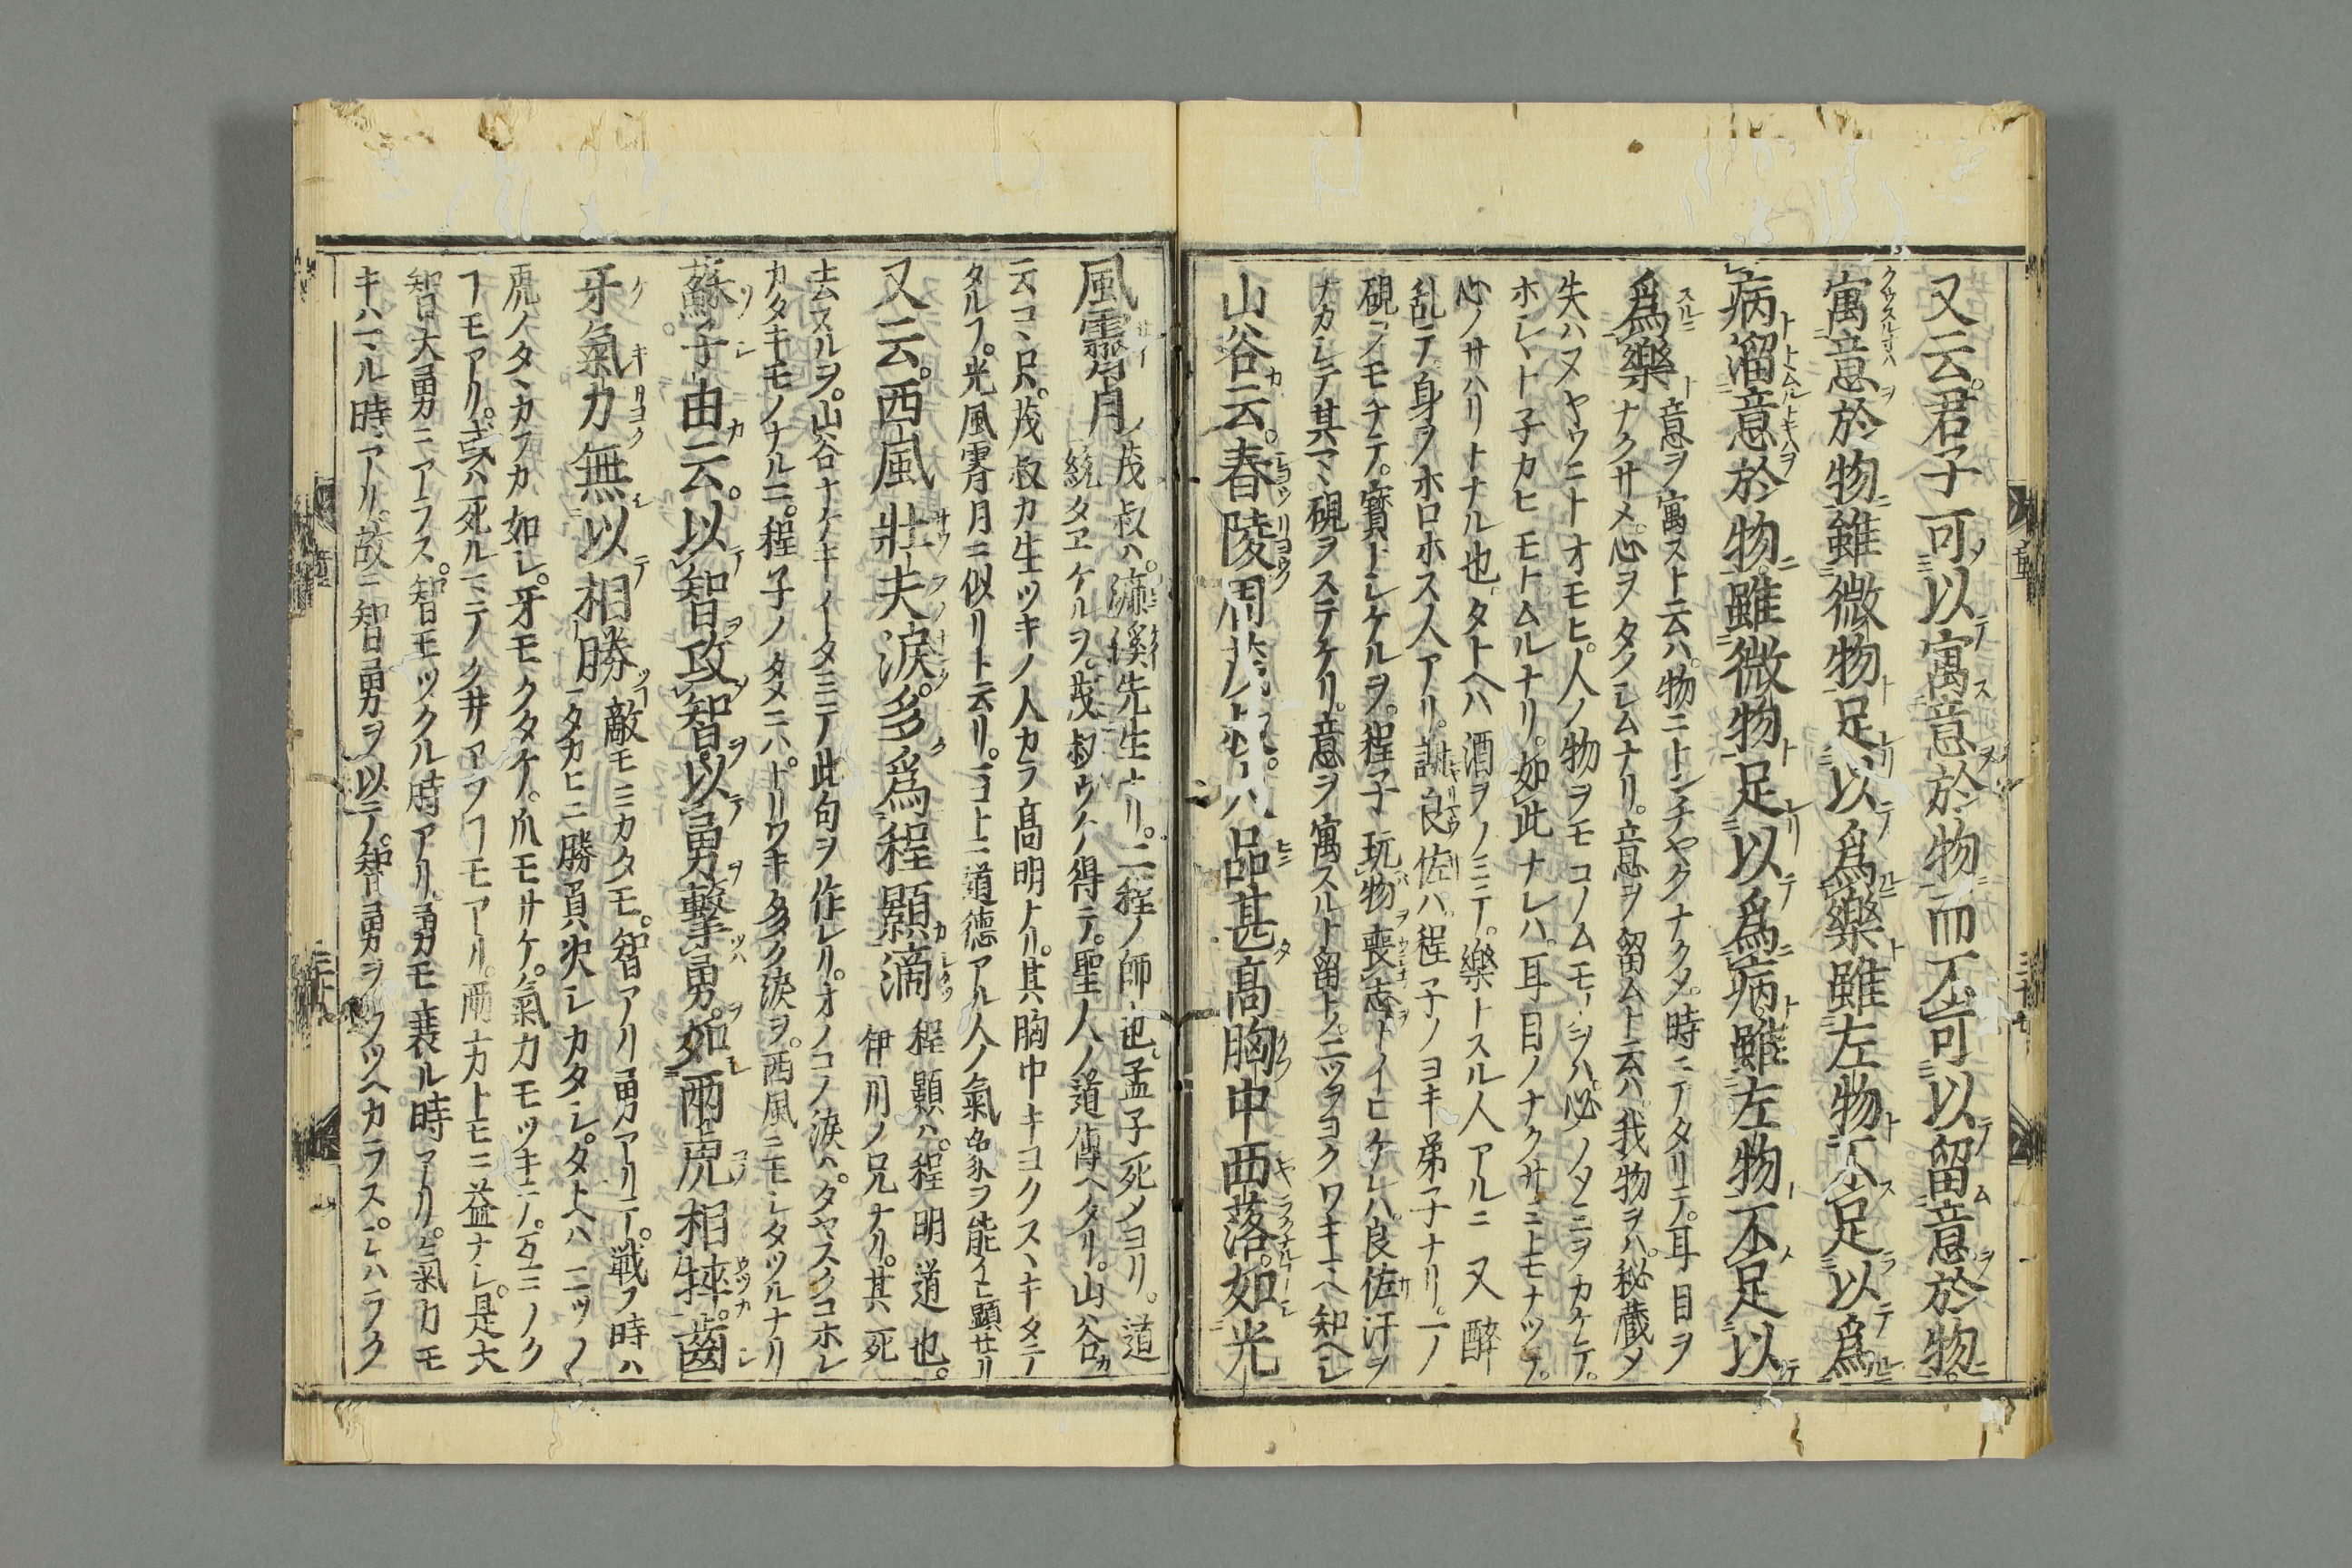 又云。君子可以寓意於物。而不可以留意於物。
寓意於物。雖微物足以爲樂。雖左物不足以爲
病。溜意於物。雖微物足以爲病。雖左物不足以
爲樂 意ヲ寓スト云ハ。物ニトンチヤクナクメ。時ニアタリテ。耳目ヲ
ナクサメ。心ヲタノシムナリ。意ヲ留ムト云ハ。我物ヲハ。秘蔵メ
失ハヌヤウニトオモヒ。人ノ物ヲモコノムモノヲハ。必ノソミヲカケテ。
ホシヽト子カヒモトムルナリ。如此ナレハ。耳目ノナクサミトモナツテ。
心ノサハリトナル也。タトヘハ酒ヲノミテ。樂トスル人アルニ又醉
乱テ身ヲホロホス人アリ。謝良佐ハ。程子ノヨキ弟子ナリ。一ノ
硯ヲモチテ。寳トシケルヲ。程子玩物喪志トイヒケレハ。良佐汗ヲ
ナカシテ其マヽ硯ヲステケリ。意ヲ寓スルト留トノ二ツヲヨクワキマヘ知ヘシ
山谷云。春陵周茂叔。人品甚髙。胸中西落。如光
風霽月 茂叔ハ。濂溪先生ナリ。二程ノ師也。孟子死ノヨリ。道
統タヱケルヲ。茂叔ウケ得テ。聖人ノ道傳ヘタリ。山谷カ
云コヽロハ。茂叔カ生ツキノ人カラ髙明ナリ。其胸中キヨクスヽキタテ
タルフ。光風霽月ニ似リト云リ。ヨトニ道德アル人ノ氣象ヲ能イヒ顯せリ
又云。西風壯夫淚。多爲程顥滴 程顥ハ。程明道也。
伊川ノ兄ナリ。其死
去スルヲ。山谷ナケキイタミテ此句ヲ作レリ。オノコノ淚ハ。タヤスクコホレ
カタキモノナルニ。程子ノタメニハ。トリワキ多ク淚ヲ。西風ニモシタツルナリ
蘇子由云。以智攻智。以勇擊勇。如兩虎相捽。齒
牙氣力無以相勝 敵モミカタモ。智アリ勇アリテ。戦フ時ハ
タカヒニ勝負决シカタシ。タトハ二ツノ
虎ノタヽカフカ如シ。牙モクタケ。爪モサケ。氣力モツキテ。互ニノク
フモアリ。或ハ死ルマテノク井アフフモアリ。兩方トモニ益ナシ。是大
智大勇ニアラス。智モツクル時アリ。勇モ衰ル時アリ。氣力モ
キハマル時アリ。故ニ智勇ヲ以テ。智勇ヲウツヘカラス。シハラク